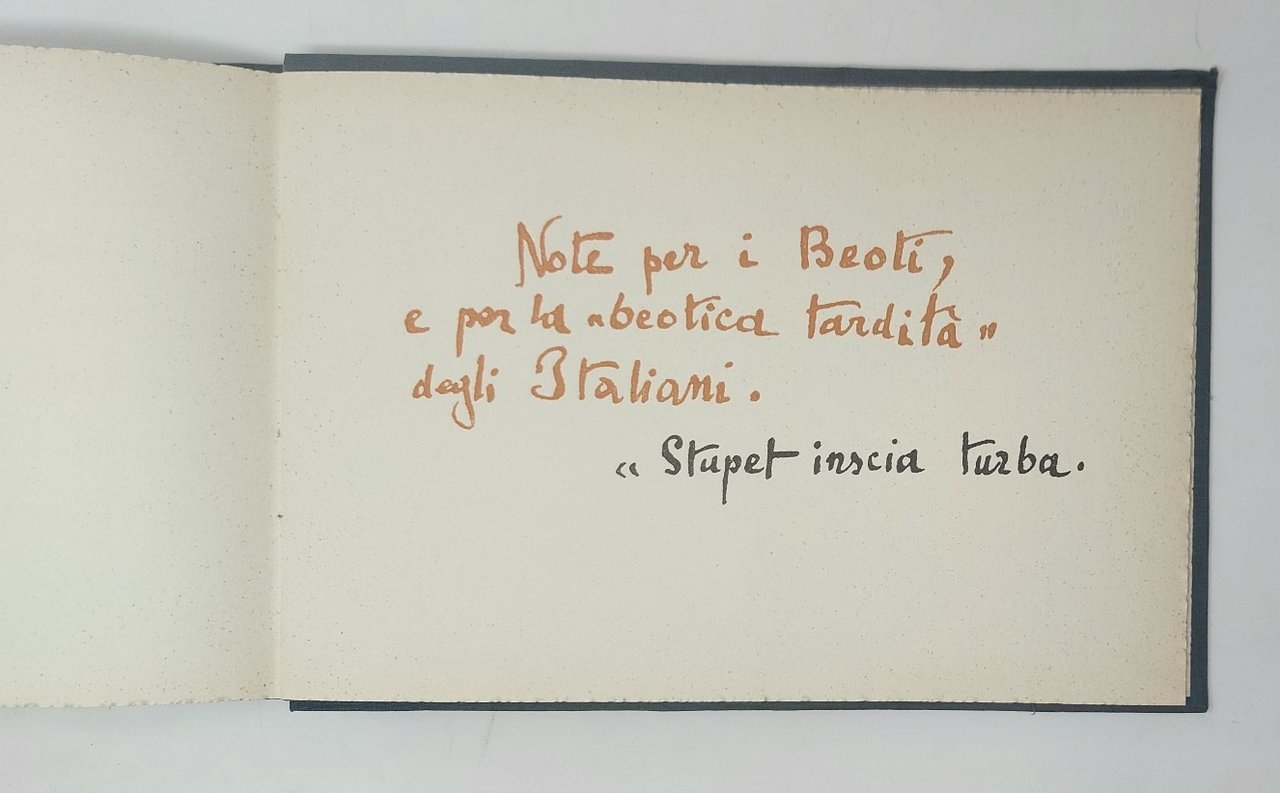 Note per i Beoti,
e per la «beotica tardità»
degli Italiani.
« Stupet inscia turba.